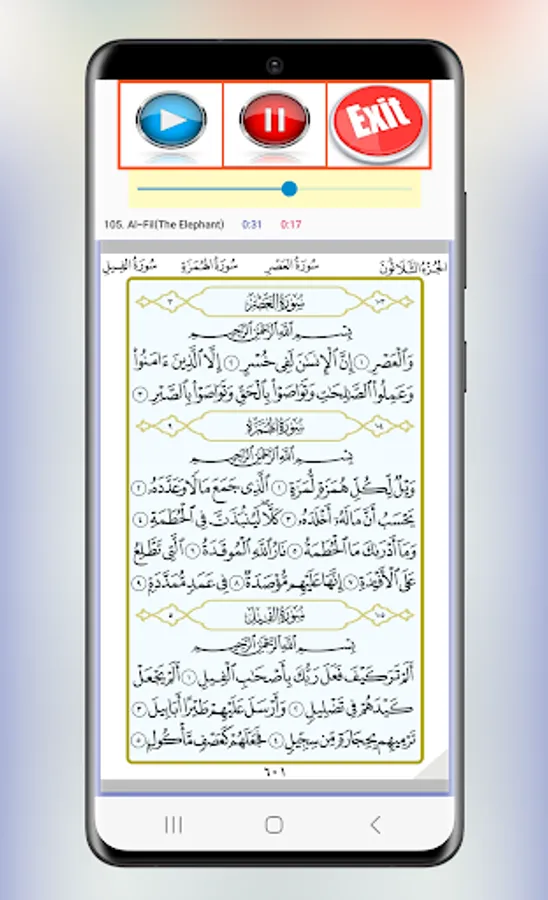 Exit
105. Al-Fil(The Elephant) 0:31 0:17
الجُزْءُ الثَّلَاثُونَ سُورَةُ العَصْرِ سُورَةُ الهُمَزَةِ سُورَةُ الفِيلِ
١٠٣ سُورَةُ العَصْرِ ٣
بِسْمِ اللَّهِ الرَّحْمَٰنِ الرَّحِيمِ
وَالْعَصْرِ ١ إِنَّ الْإِنسَانَ لَفِي خُسْرٍ ٢ إِلَّا الَّذِينَ ءَامَنُوا
وَعَمِلُوا الصَّالِحَاتِ وَتَوَاصَوْا بِالْحَقِّ وَتَوَاصَوْا بِالصَّبْرِ ٣
١٠٤ سُورَةُ الهُمَزَةِ ٩
بِسْمِ اللَّهِ الرَّحْمَٰنِ الرَّحِيمِ
وَيْلٌ لِّكُلِّ هُمَزَةٍ لُّمَزَةٍ ١ الَّذِي جَمَعَ مَالًا وَعَدَّدَهُ ٢
يَحْسَبُ أَنَّ مَالَهُ أَخْلَدَهُ ٣ كَلَّا لَيُنبَذَنَّ فِي الْحُطَمَةِ ٤
وَمَا أَدْرَاكَ مَا الْحُطَمَةُ ٥ نَارُ اللَّهِ الْمُوقَدَةُ ٦ الَّتِي تَطَّلِعُ
عَلَى الْأَفْئِدَةِ ٧ إِنَّهَا عَلَيْهِم مُّؤْصَدَةٌ ٨ فِي عَمَدٍ مُّمَدَّدَةٍ ٩
١٠٥ سُورَةُ الفِيلِ ٥
بِسْمِ اللَّهِ الرَّحْمَٰنِ الرَّحِيمِ
أَلَمْ تَرَ كَيْفَ فَعَلَ رَبُّكَ بِأَصْحَابِ الْفِيلِ ١ أَلَمْ يَجْعَلْ
كَيْدَهُمْ فِي تَضْلِيلٍ ٢ وَأَرْسَلَ عَلَيْهِمْ طَيْرًا أَبَابِيلَ ٣
تَرْمِيهِم بِحِجَارَةٍ مِّن سِجِّيلٍ ٤ فَجَعَلَهُمْ كَعَصْفٍ مَّأْكُولٍ ٥
٦٠١